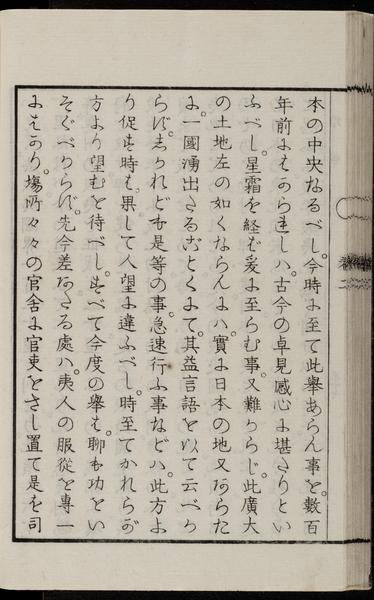 本の中央なるべし。今時に至て此擧あらん事を。數百
年前にはかられしハ。古今の卓見感心に堪たりとい
ふべし。星霜を経ば爰に至らむ事又難からじ。此廣大
の土地左の如くならんにハ。實に日本の地又あらた
に。一國湧出たるごとくにて。其益言語を以て云べか
らず。しかれども是等の事。急速行ふ事などハ。此方よ
り促す時は。果して人望に違ふべし。時至てかれらが
方より望むを待べし。すべて今度の擧は。聊も功をい
そぐべからず。先今差あたる處ハ。夷人の服從を專一
にはかり。場所々々の官舎に官吏をさし置て是を司